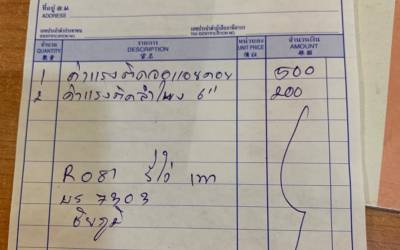 ที่อยู่
ADDRESS
เลขประจำตัวประชาชน
IDENTIFICATION NO.
เลขประจำตัวผู้เสียภาษีอากร
TAX IDENTIFICATION NO.
จำนวน QUANTITY 數量
รายการ DESCRIPTION
หน่วยละ UNIT PRICE
จำนวนเงิน AMOUNT
1 ค่าแรงติดจอแอนดอย 500
2 ค่าแรงติดลำโพง 6" 200
R081 รีโว่ เทา
บร 7303
ชัยภูมิ